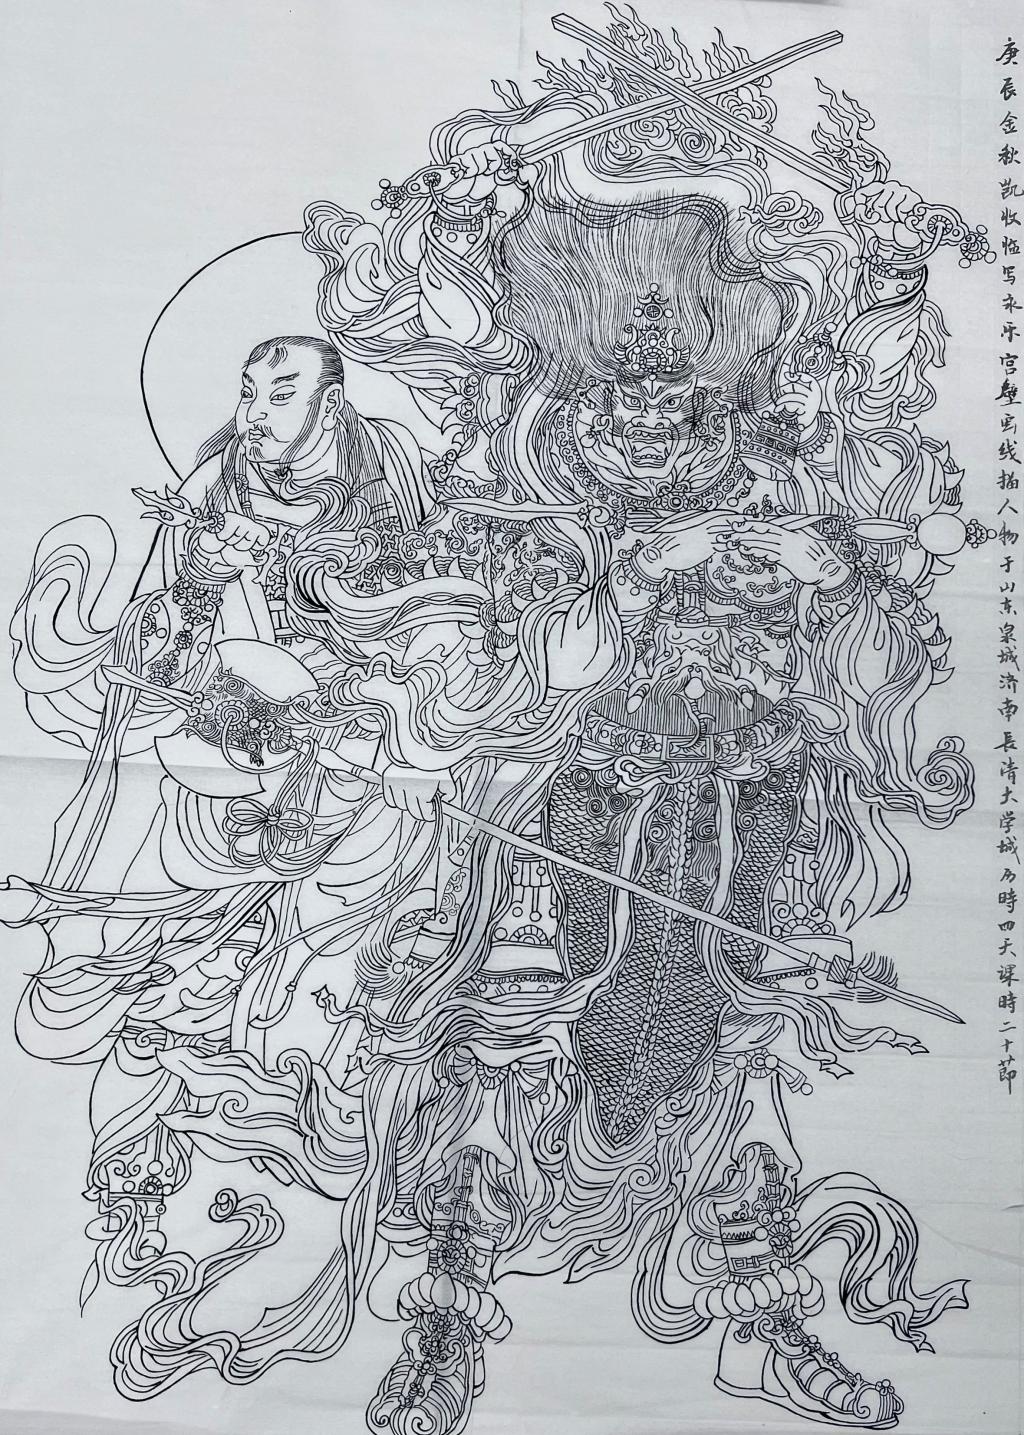 庚辰金秋凯收临写永乐宫壁画线描人物于山东泉城济南長清大学城历時四天课時二十節